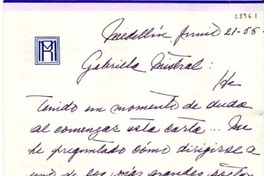 2896.1
Medellín Junio 21-55-
Gabriela Mistral:
He
tenido un momento de duda
al comenzar esta carta... Me
he preguntado cómo dirigirse a
uno de los más grandes